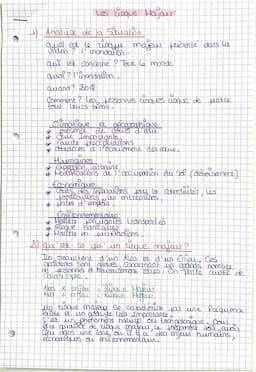 Les risque Majeur
1) Analyse de la Situation
quel est le risque majeur présenté dans la
vidéo ? l'inondation.
qui est concerné ? Tout le monde
quoi ? l'inondation.
quand ? 2018
Comment ? Les personnes risque de perdre
tous leurs biens.
Climatique et géographique
présence de cours d'eau
Crue Importante
fautes précipitations
obstacles à l'écoulement des eaux.
Humaines
Expansion urbaine
Modifications de l'occupation du sol (déboisement)
Économique
Coûts des réparations pour la collectivité, les
particuliers, les entreprises.
pertes d'emplois.
Environnementales
Matière transportés
Risque Sanitaires
Matière en
2) qu'est ce qu'un risque majeur ?
Ils résultent d'un Aléa et d'un Enjeu. Ces
accidents sont graves, concernant un grand nombre
de personnes et On parle aussi de
catastrophe.
Aléa x enjeu = Risque Majeur
Aléa + enjeu = Risque Majeur
Un risque majeur se caractérise par une fréquence
faible et un gravité très Importante.
C'est un phénomène naturel ou technologique. Pour
être qualifié de risque majeur, le doit avoir
lieu dans une zone où il y a des enjeux humains,
économiques ou environnementaux.